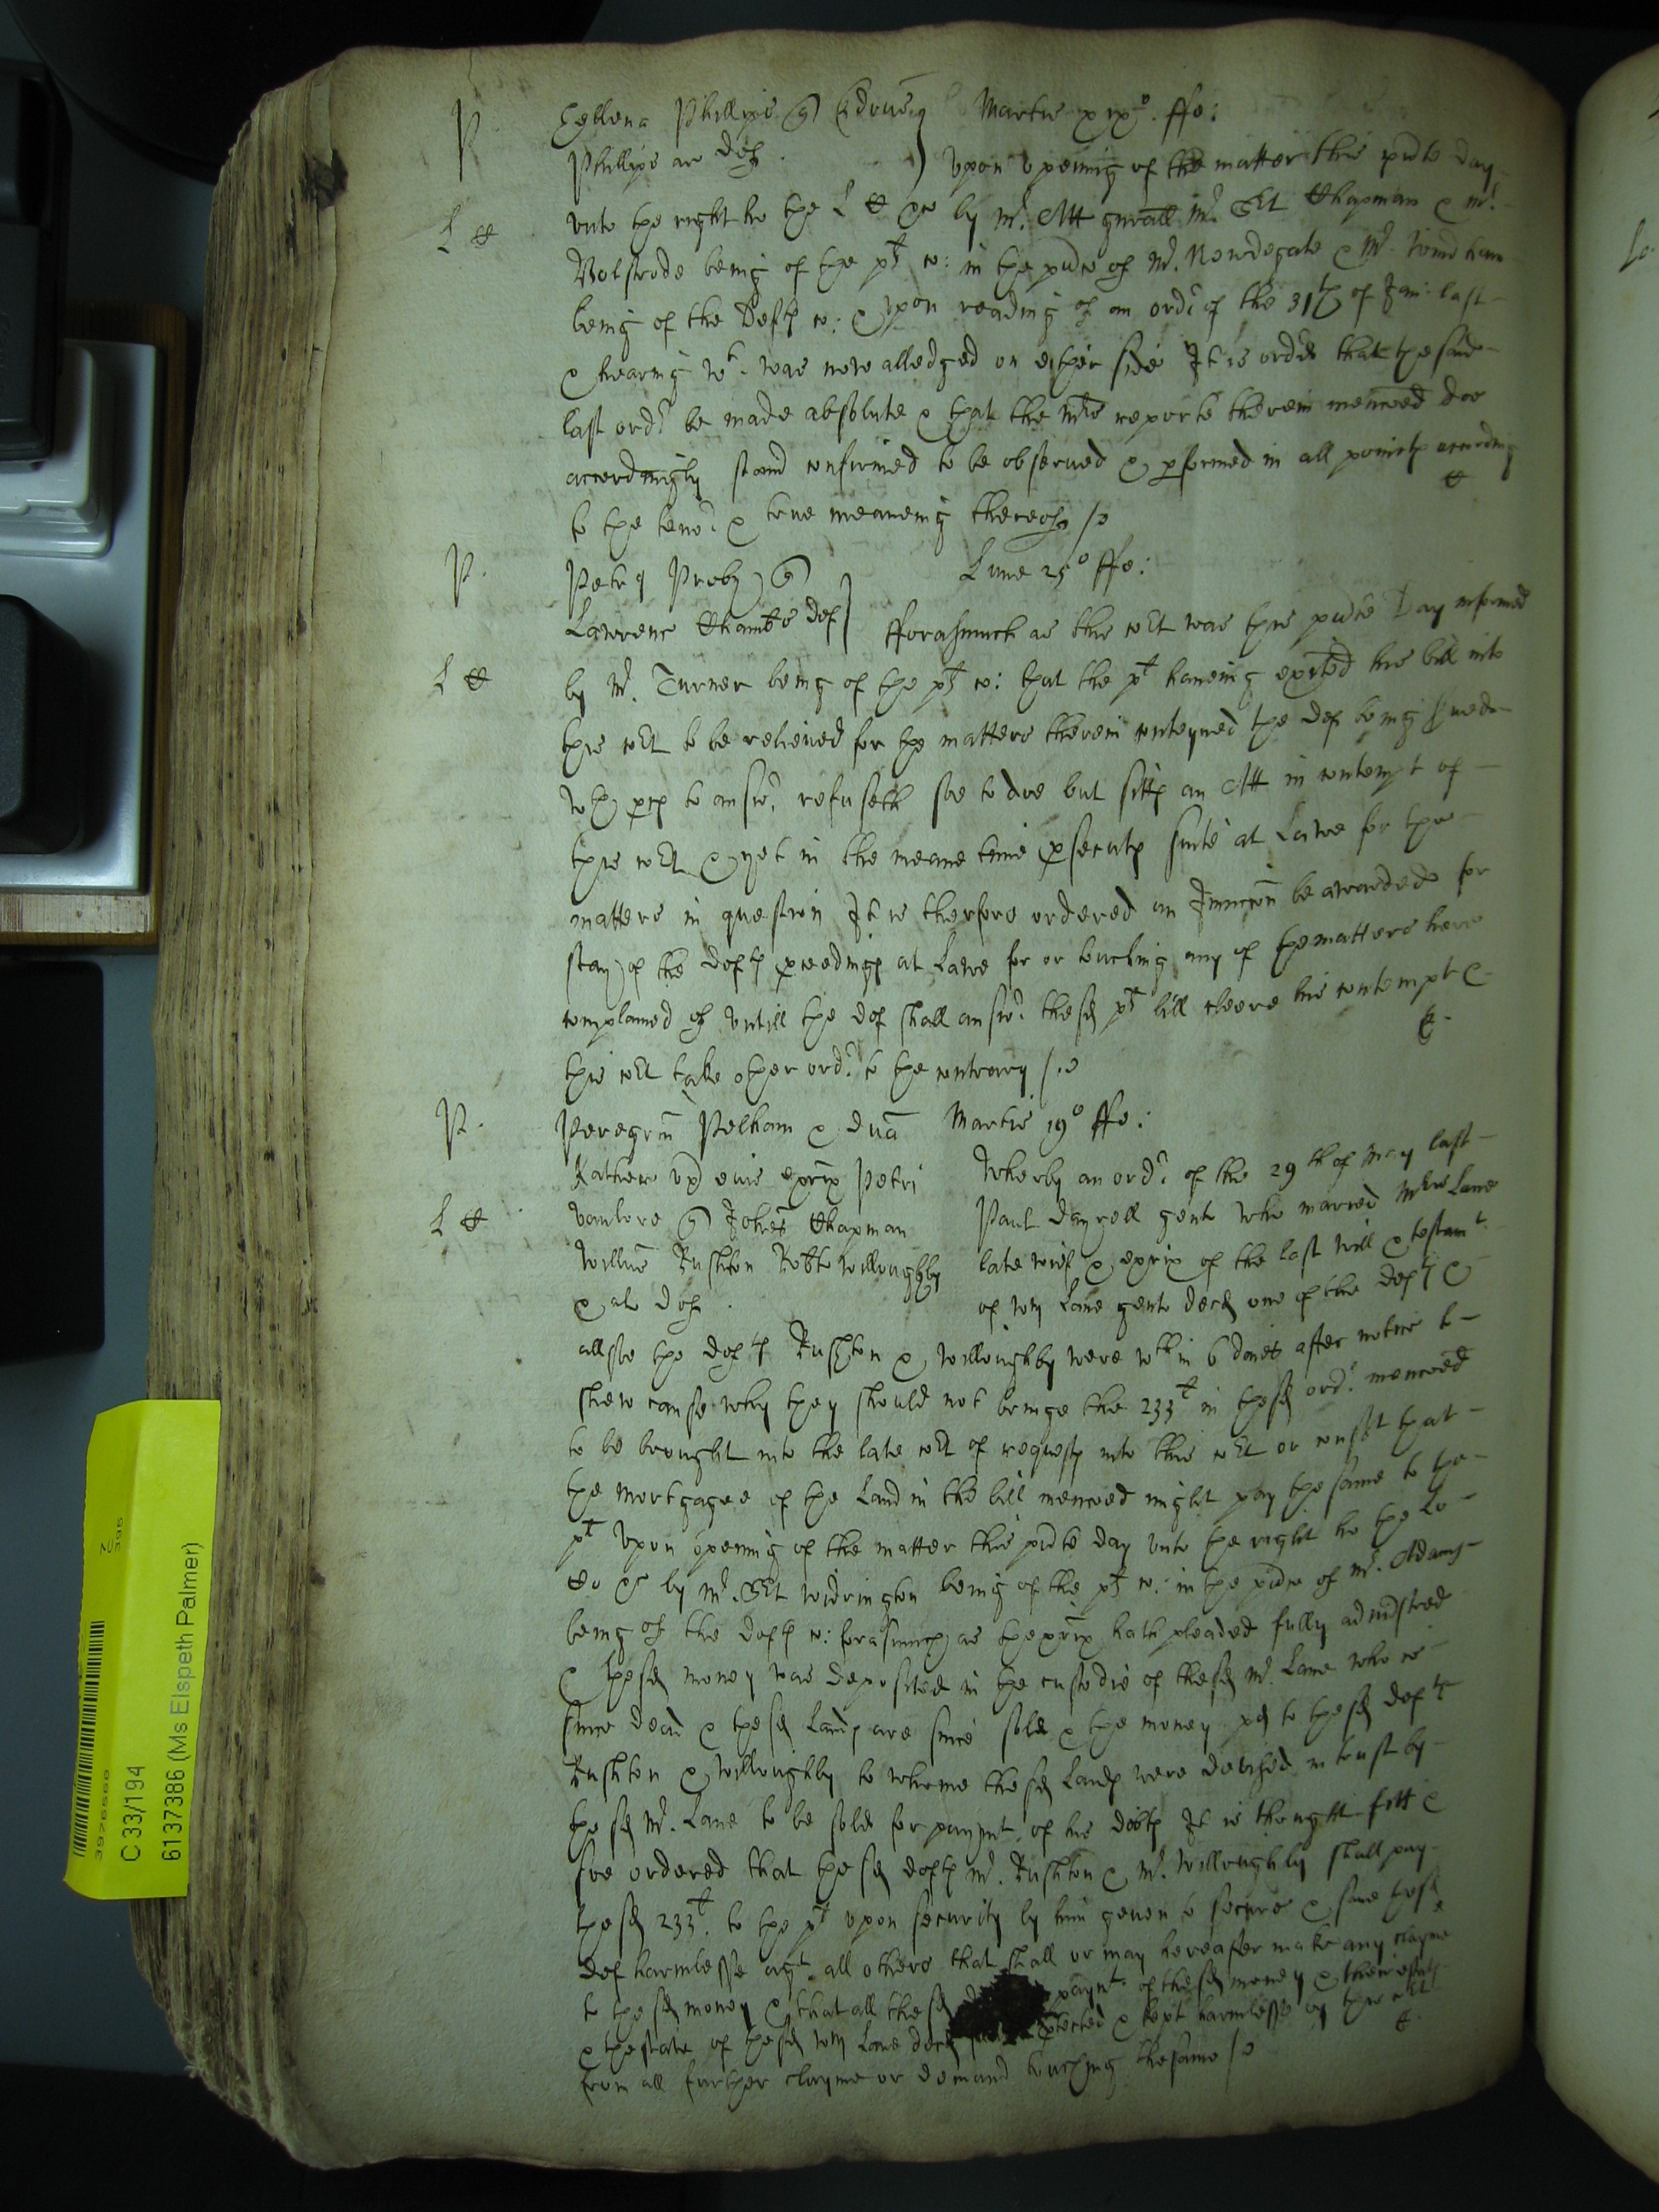 P. Egllena Phillips q) Edrus Martis xix° ffe:
Phillips ar def. } Upon opening of the matter this pnte day
L C unto the right ho the L C &c by Mr. Att gnrall Mr. Srt Chapman & Mr.
Bolstrode being of the plts co: in the pnce of Mr. Newdegate & Mr. Wind ham
being of the Defts co: & upon reading of an ordr of the 31th of Jan: last
& hearing wt. was now alledged on either side It is ordr that the said
last ordr be made absolute & that the Mrs reporte therein menconed doe
accordingly stand confirmed to be observed & pformed in all points according
to the tenor & true meaneing thereof /.
P. Petrq Proby q) Lune 25° ffe:
Lawrenc Chambs def } fforasmuch as this cort was this pnte Day informed
L C by Mr. Turner being of the plts co: that the plt haveing exited his bill into
this cort to be releived for the matters therein conteyned the def being served
wth pces to answr refuseth soe to doe but sitts an Att in contempt of
this cort & yet in the meane time psecuts suite at Lawe for the
matters in question It is therfore ordered an Iniuncon be awarded for
stay of the defts pceedings at Lawe for or touching any of the matters here
complained of untill the def shall answr the sd plts bill cleere his contempt &
this cort take other ordr to the contrary /.
P. Peregrin Pelham & dna Martis 19° ffe:
Katherin ux eius exrix Petri Wherby an ordr of the 29th of May last
L C Vanlore q) Johes Chapman Paul Dayrell gent who married Mris Lane
Willm Rushton Robt Willoughby late wife & exrix of the last will & testamt
& als def. of Wm Lane gent decd one of the defts &
allsoe the defts Rushton & Willoughby were wthin 6 daies after notice to
shew cause why they should not bringe the 233l in the sd ordr menconed
to be brought into the late cort of requests into this cort or consent that
the mortgagee of the Land in the bill menconed might pay the same to the
plt Upon opening of the matter this pnte day unto the right ho the Lo
Co &c by Mr. Srt Widrington being of the plts co: in the pnce of Mr. Adams
being of the defts co: forasmuch as the exrix hath pleaded fully administred
& the sd money was deposited in the custodie of the sd Mr. Lane who is
since dead & the sd Lands are since sold & the money pd to the sd defts
Rushton & Willoughby to whome the sd Lands were devised in trust by
the sd Mr. Lane to be sold for paymt of his debts It is thought fitt &
soe ordered that the sd defts Mr. Rushton & Mr. Willoughby shall pay
the sd 233l. to the plt upon security by him geven to secure & save the sd
def harmlesse agt. all others that shall or may hereafter make any clayme
to the sd money & that all the sd paymt. of the sd money & their estats
& the state of the sd Wm Lane decd ptected & kept harmlesse by this cort
from all further clayme or demand touching the same /.
C 33/194
6137386 (Ms Elspeth Palmer)